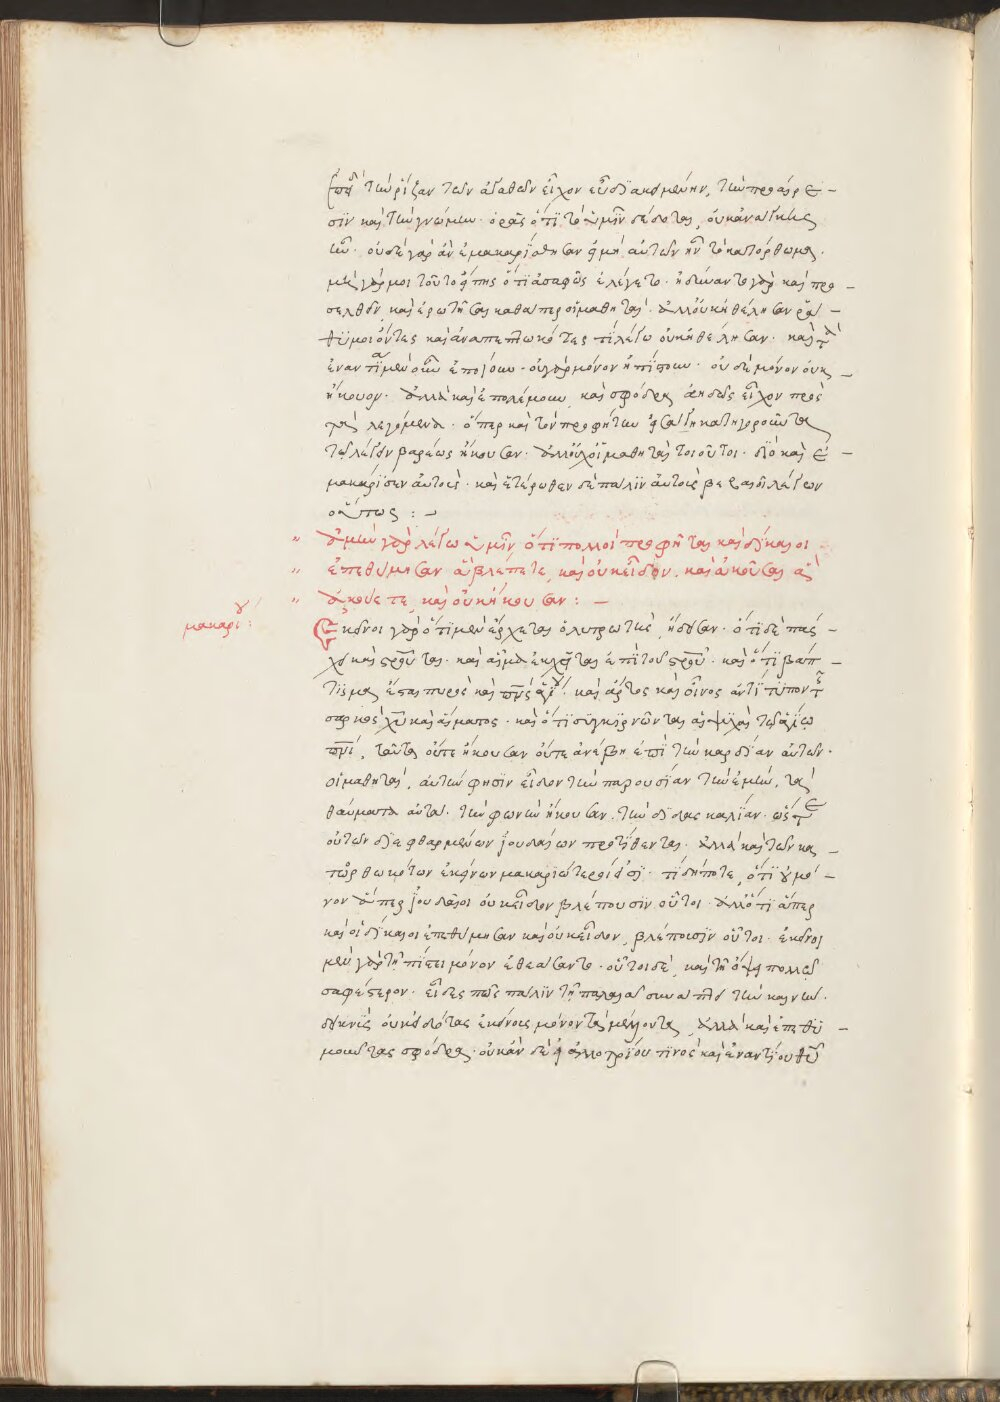 τὴν ῥίζαν τῶν ἀγαθῶν εἶχον εὐδιακειμένην, τὴν προαίρε –
σϊν καὶ τὴν γνώμην · ὁρᾶς ὅτϊ τὸ ὑμῖν δέδοται, οὐκ ἀνάγκης
ἦν · οὐδὲ γὰρ ἂν ἐμακαρΐσθησαν εἰ μὴ αὐτῶν ἦν τὸ κατόρθωμα ·
μὴ γάρ μοι τοῦτο εἴπῃς ὅτϊ ἀσαφῶς ἐλέγετο · ἠδύναντο γὰρ καὶ προ –
σελθεῖν καὶ ἐρωτῆσαι καθάπερ οἱ μαθηταί · ἀλλ' οὐκ ἠθέλησαν ῥᾳ –
θϋμοι ὄντες καὶ ἀναπεπτωκότες τί λέγω οὐκ ἠθέλησαν · καὶ τὰ
ἐναντία μὲν οὖν ἐποίουν · οὐ γὰρ μόνον ἠπίστουν · οὐδὲ μόνον οὐκ –
ἤκουον · ἀλλὰ καὶ ἐπολέμουν καὶ σφόδρα ἀηδῶς εἶχον πρὸς
τὰ λεγόμενα · ὅπερ καὶ τὸν προφήτην εἰσάγει κατηγοροῦντα
τῷ λέγειν βαρέως ἤκουσαν · ἀλλ' οὐχ οἱ μαθηταὶ τοιοῦτοι · διὸ καὶ ἐ –
μακάρϊσεν αὐτούς · καὶ ἑτέρωθεν δὲ πάλϊν αὐτοὺς βεβαιοῖ λέγων
οὕτως : –
" ἀμὴν γὰρ λέγω ὑμῖν ὅτϊ πολλοὶ προφῆται καὶ δίκαιοι
" ἐπεθύμησαν ἃ βλέπετε, καὶ οὐκ εἶδον. καὶ ἀκοῦσαι ἃ
" ἀκούετε, καὶ οὐκ ἤκουσαν : –
μακαρίου :
Ἐκεῖνοι γὰρ ὅτϊ μὲν ἔρχεται ὁ λυτρωτὴς, ᾔδεσαν · ὅτϊ δὲ πάς –
χει καὶ σροῦται · καὶ αἷμα ἐκχεῖται ἐπὶ τοῦ σροῦ · καὶ ὅτϊ βάπ –
τϊσμα ἔσται πυρὸς καὶ πνς ἁγίου · καὶ ἄρτος καὶ οἶνος ἀντίτυπον τῆς
σαρκὸς χυ καὶ αἵματος · καὶ ὅτϊ συγκϊρνῶνται αἱ ψϋχαὶ τῷ ἁγίῳ
πνι, ταῦτα οὔτε ἤκουσαν οὔτε ἀνέβη ἐπὶ τὴν καρδίαν αὐτῶν ·
οἱ μαθηταὶ, αὐτὴν φησὶν εἶδον τὴν παρουσίαν τὴν ἐμὴν, τὰ
θαύματα αὐτά · τὴν φωνὴν ἤκουσαν · τὴν διδασκαλίαν · ὥστε
οὐ τῶν διεφθαρμένων ἰουδαίων προτΐθενται · ἀλλὰ καὶ τῶν κα –
τωρθωκότων ἐκείνων μακαριώτεροί εἰσι · τί δήποτε, ὅτϊ οὐ μό –
νον ἅπερ ἰουδαῖοι οὐκ εἶδον βλέπουσϊν οὗτοι · ἀλλ' ὅτϊ ἅπερ
καὶ οἱ δίκαιοι ἐπεθύμησαν καὶ οὐκ εἶδον, βλέπουσϊν οὗτοι · ἐκεῖνοι
μὲν γὰρ τῇ πίστει μόνον ἐθεάσαντο · οὗτοι δὲ, καὶ τῇ ὄψει πολλῷ
σαφέστερον · εἶδες πῶς πάλϊν τῇ παλαιᾷ συνάπτει τὴν καινήν ·
δεικνὺς οὐκ εἰδότας ἐκείνους μόνον τὰ μέλλοντα, ἀλλὰ καὶ ἐπιθϋ –
μοῦντας σφόδρα · οὐκ ἂν δὲ εἰ ἀλλοτρίου τϊνὸς καὶ ἐναντίου θῦ